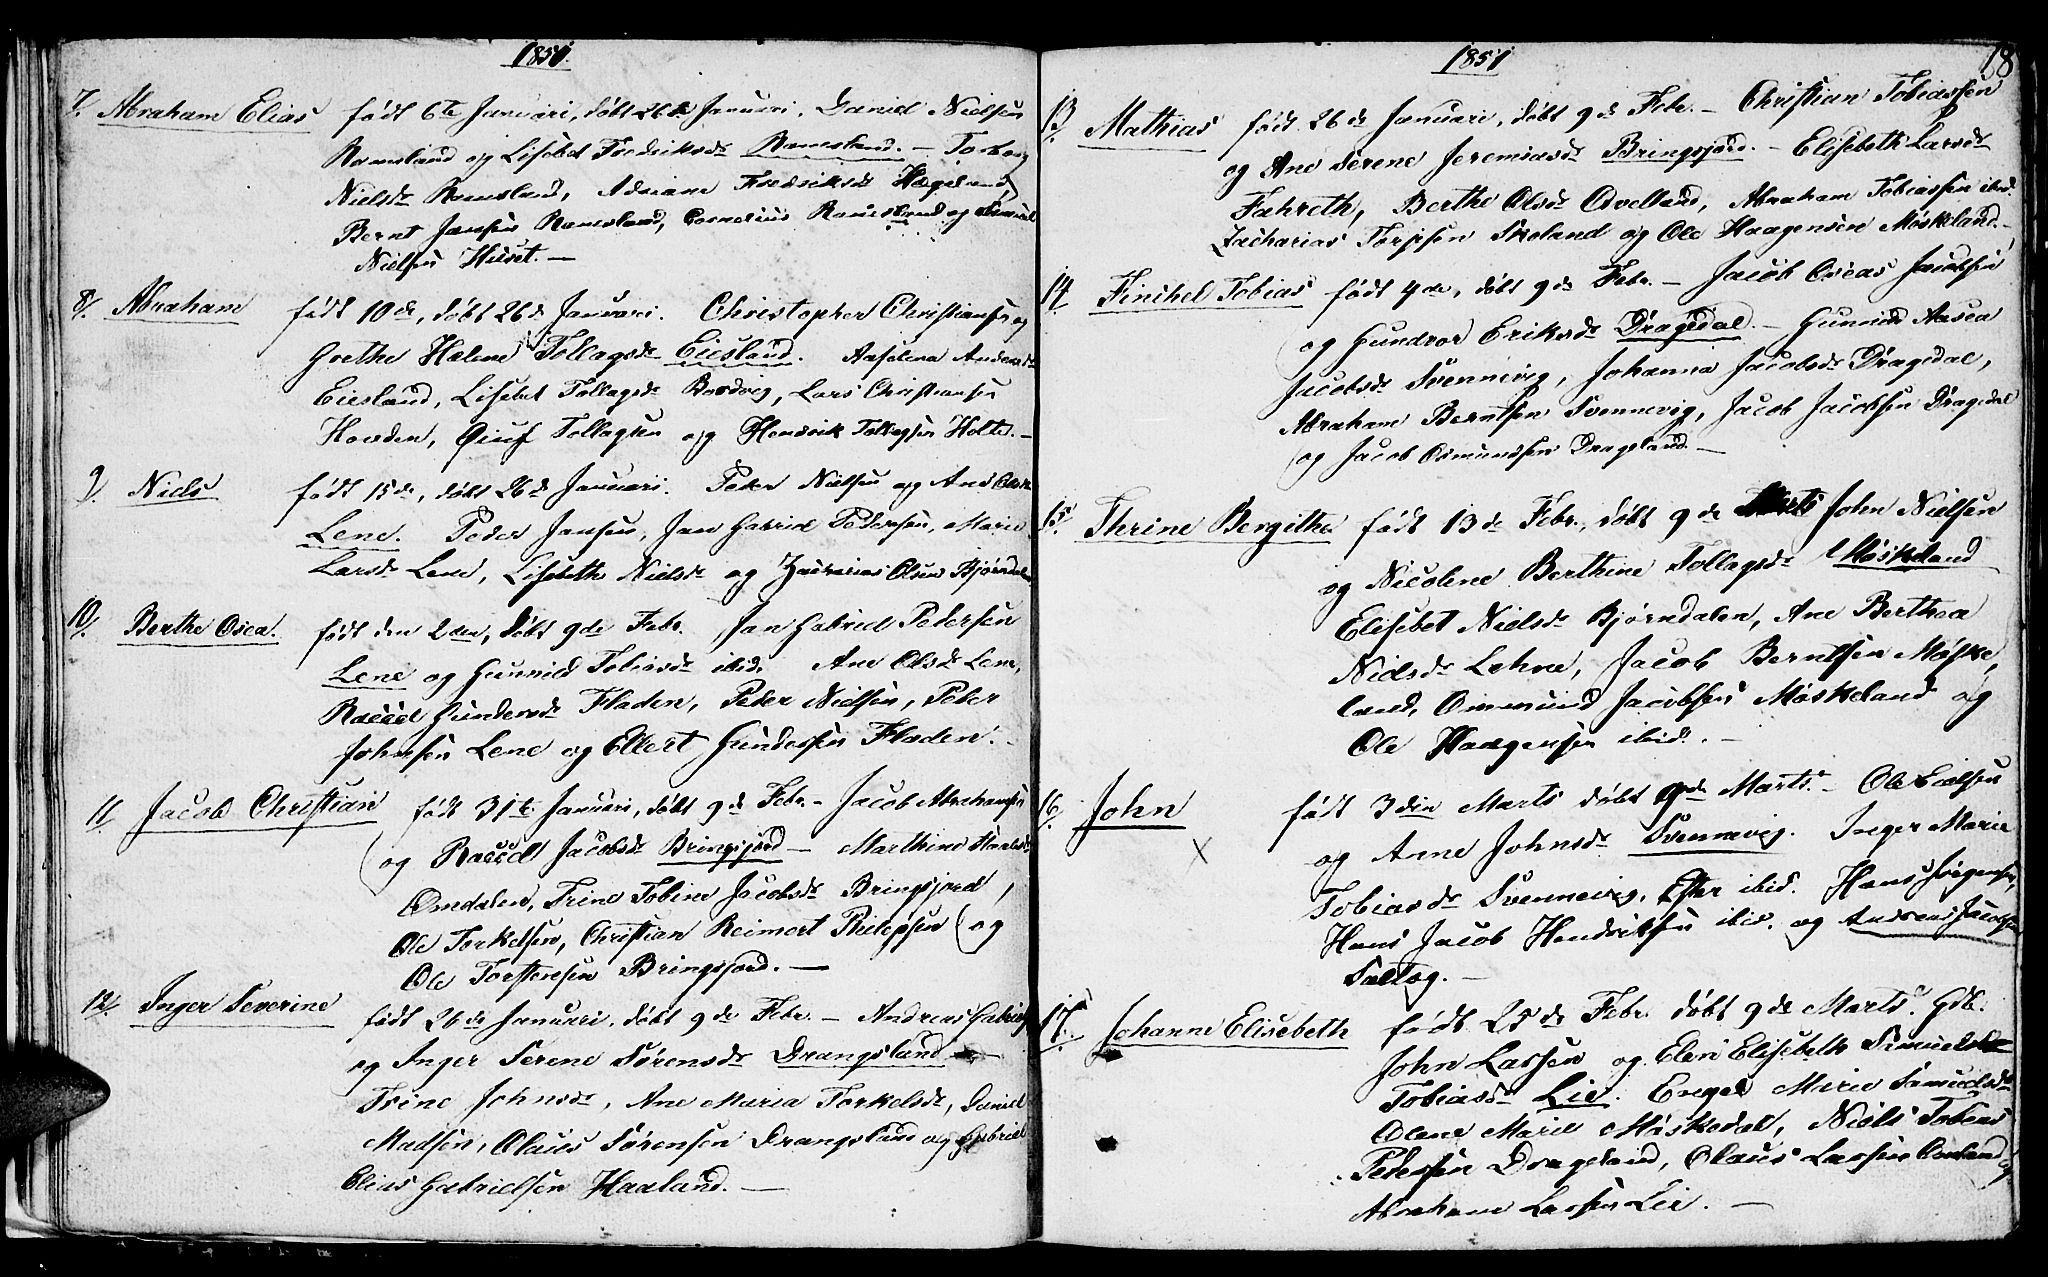 1851.
7. Abraham Elias født 6te Januari, døbt 26de Januari. Daniel Nielsen
Ramsland og Lisebet Fredriksdr Ramsland. — Torborg
Nielsdr Ramsland, Adriane Fredriksdr Hægeland,
Bernt Jansen Ramsland, Cornelius Ramsland og Samuel
Nielsen Huset. —
8/. Abraham født 10de, døbt 26de Januari. Christopher Christiansen og
Grethe Helene Tollagsdr Eiesland. Aaselena Andersdr
Eiesland, Lisebet Tollagsdr Bordvig, Lars Christiansen
Hovden, Tollagsen og Hendrik Tollagsen Holte. —
9/. Niels født 15de, døbt 26de Januari. Peder Nielsen og Ane Olsdr
Lene. Peder Jansen, Jan Gabriel Pedersen, Marie
Larsdr Lene, Lisebeth Nielsdr og Zacharias Olsen Bjørndalen
10/. Berthe Osea. født den 2den, døbt 9de Febr. Jan Gabriel Pedersen
Lene og Gunnild Tobiasdr ibid. Ane Olsdr Lene,
Rachel Gundersdr Fladen, Peder Nielsen, Peder
Johnsen Lene og Ellert Gundersen Fladen. —
11/. Jacob Christian født 31te Januari, døbt 9de Febr. — Jacob Abrahamsen
og Rachel Jacobsdr Bringsjord — Marthine
Omdalen, Trine Tobine Jacobsdr Bringsjord,
Ole Torkelsen, Christian Reimert Philepsen og
Ole Torstensen Bringsjord. —
12/. Inger Severine født 26de Januari. døbt 9de Febr. — Andreas Gabriels
og Inger Serene Sørensdr Drangsland —
Trine Johnsdr, Ane Maria Torkelsdr, Daniel
Madsen, Olaus Sørensen Drangsland og Gabriel
Elias Gabrielsen Haaland. —
1851
18
13/. Mathias født 26de Januari, døbt 9de Febr. — Christian Tobiassen
og Ane Serene Jeremiasdr Bringsjord. — Elisebeth Larsdr
Fahreth, Berthe Olsdr Qvelland, Abraham Tobiassen ibid.
Zacharias Torjesen Skoland og Ole Haagensen Møskeland. —
14/. Tobias født 4de, døbt 9de Febr. — Jacob Oseas Jacobsen
og Gundvor Eriksdr Dragedal. — Gunnild Aasea
Jacobsdr Svennevig, Johanna Jacobsdr Dragedal,
Abraham Berntsen Svennevig, Jacob Jacobsen Dragedal
og Jacob Osmundsen Drageland. —
15/. Thrine Bergithe født 13de Febr., døbt 9de Marts John Nielsen
og Nicolene Berthine Tollagsdr Møskeland
Elisebet Nielsdr Bjørndalen, Ane Berthea
Nielsdr Lehne, Jacob Berntsen Møske,
land, Ommund Jacobsen Møskeland og
Ole Haagensen ibid. —
16/. John født 3din Marts døbt 9de Marts. — Ole
og Anne Johnsdr Svennevig. Inger Marie
Tobiasdr Svennevig, Ester ibid. Hans Jørgensen,
Hans Jacob Hendriksen ibid. og Andreas Jacobsen
Saltog. —
17. Johanne Elisebeth født 25de Febr. døbt 9de Marts. Gdb.
John Lassen og Eleni Elisebeth
Tobiasdr Lie. Engel Mirie Samuelsdr
Olene Marie Møskedal, Niels Tobias
Pedersen Drageland, Olaus Lassen Omland og
Abraham Lassen Lie. —